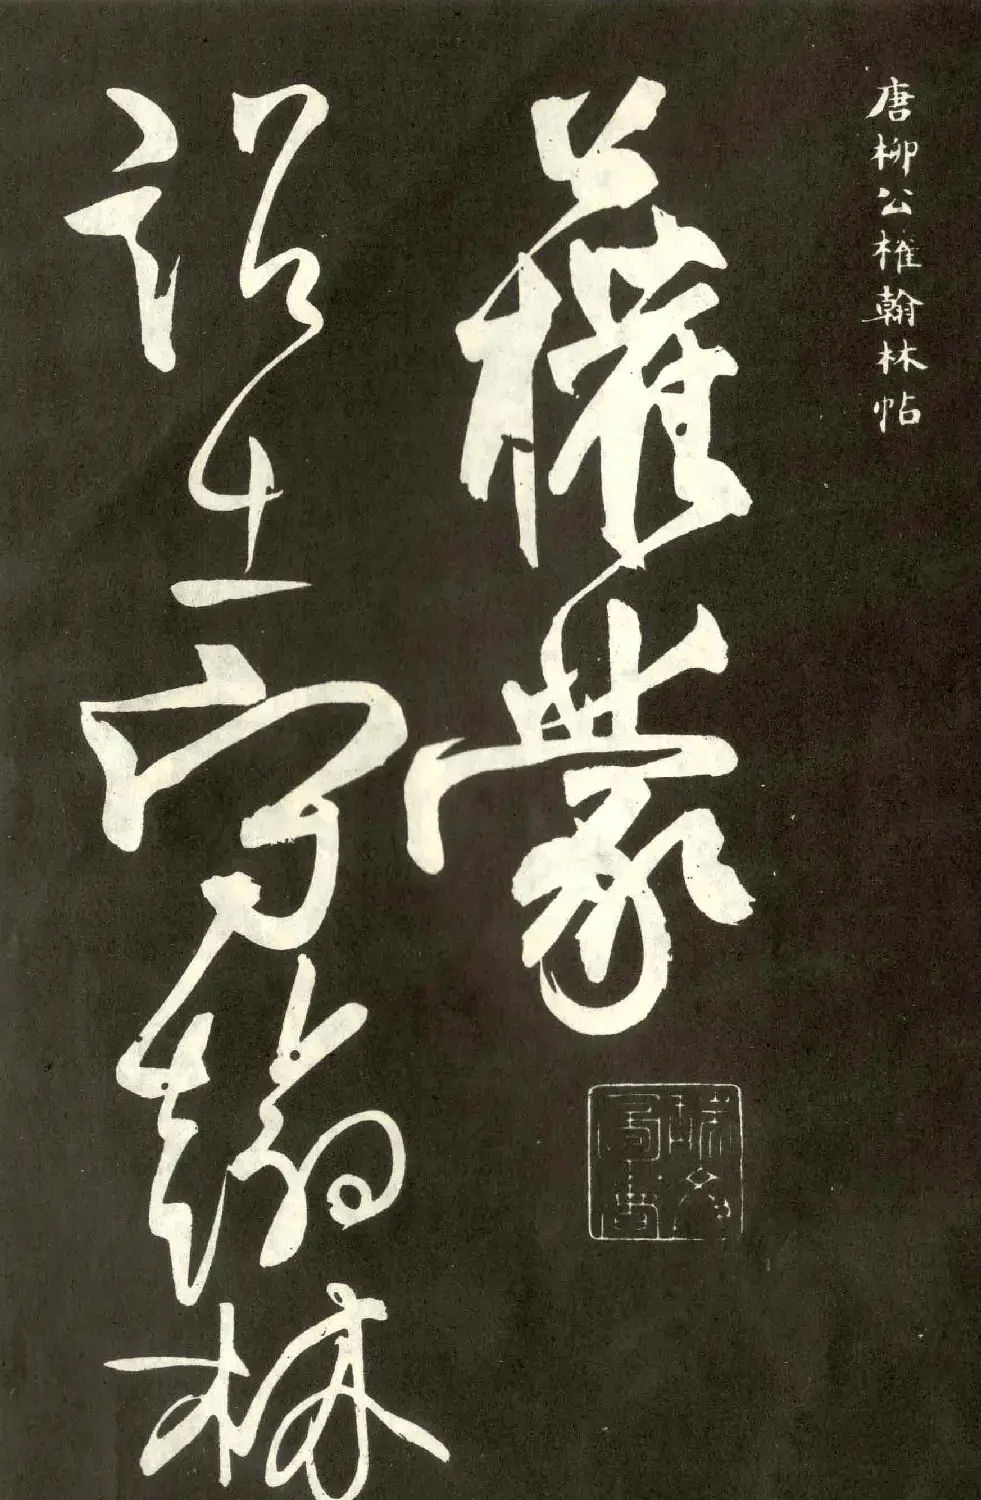 唐柳公權翰林帖
公權蒙
詔出守翰林